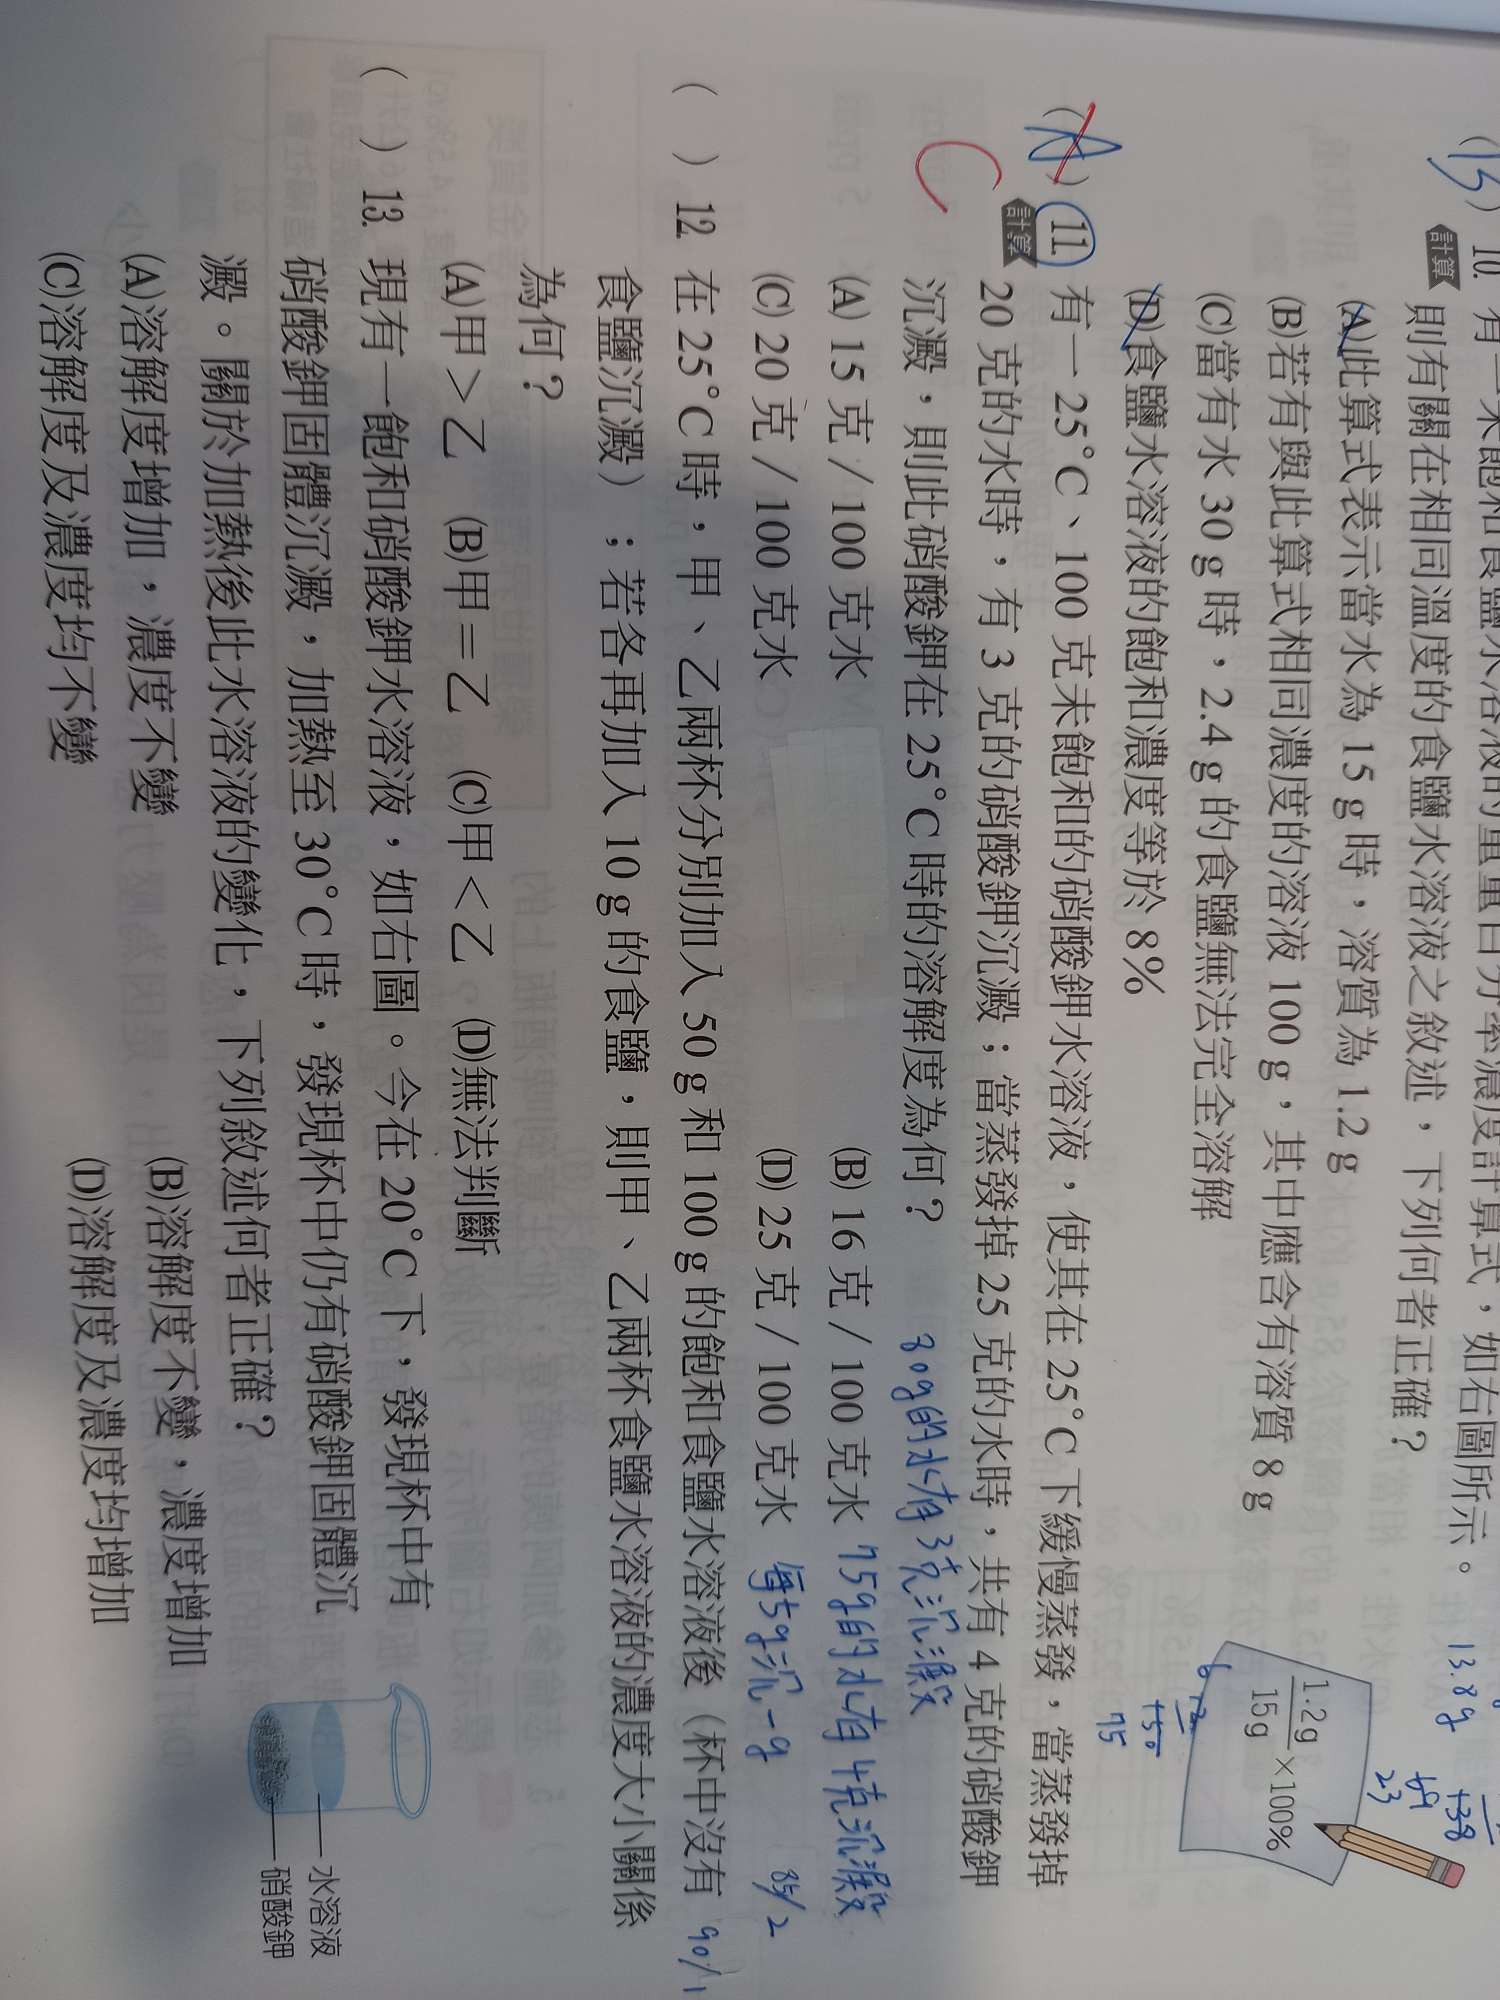 (B) 10. 有一未飽和食鹽水溶液的重量百分率濃度計算式,如右圖所示。
計算 則有關在相同溫度的食鹽水溶液之敘述,下列何者正確?
(A)此算式表示當水為 15 g 時,溶質為 1.2 g
(B)若有與此算式相同濃度的溶液 100 g,其中應含有溶質 8 g
(C)當有水 30 g 時,2.4 g 的食鹽無法完全溶解
(D)食鹽水溶液的飽和濃度等於 8%
1.2 g
15 g
×100%
13.8g
23
75
(A) 11. 有一 25°C、100 克未飽和的硝酸鉀水溶液,使其在 25°C 下緩慢蒸發,當蒸發掉
C
計算 20 克的水時,有 3 克的硝酸鉀沉澱;當蒸發掉 25 克的水時,共有 4 克的硝酸鉀
沉澱,則此硝酸鉀在 25°C 時的溶解度為何?
80g的水有3克沉澱
(A) 15 克/100 克水 (B) 16 克/100 克水
75g的水有4克沉澱
(C) 20 克/100 克水 (D) 25 克/100 克水
每5g沉一g
85/2
90/1
( ) 12. 在 25°C 時,甲、乙兩杯分別加入 50 g 和 100 g 的飽和食鹽水溶液後(杯中沒有
食鹽沉澱);若各再加入 10 g 的食鹽,則甲、乙兩杯食鹽水溶液的濃度大小關係
為何?
(A)甲>乙 (B)甲=乙 (C)甲<乙 (D)無法判斷
( ) 13. 現有一飽和硝酸鉀水溶液,如右圖。今在 20°C 下,發現杯中有
硝酸鉀固體沉澱,加熱至 30°C 時,發現杯中仍有硝酸鉀固體沉
澱。關於加熱後此水溶液的變化,下列敘述何者正確?
(A)溶解度增加,濃度不變 (B)溶解度不變,濃度增加
(C)溶解度及濃度均不變 (D)溶解度及濃度均增加
水溶液
硝酸鉀